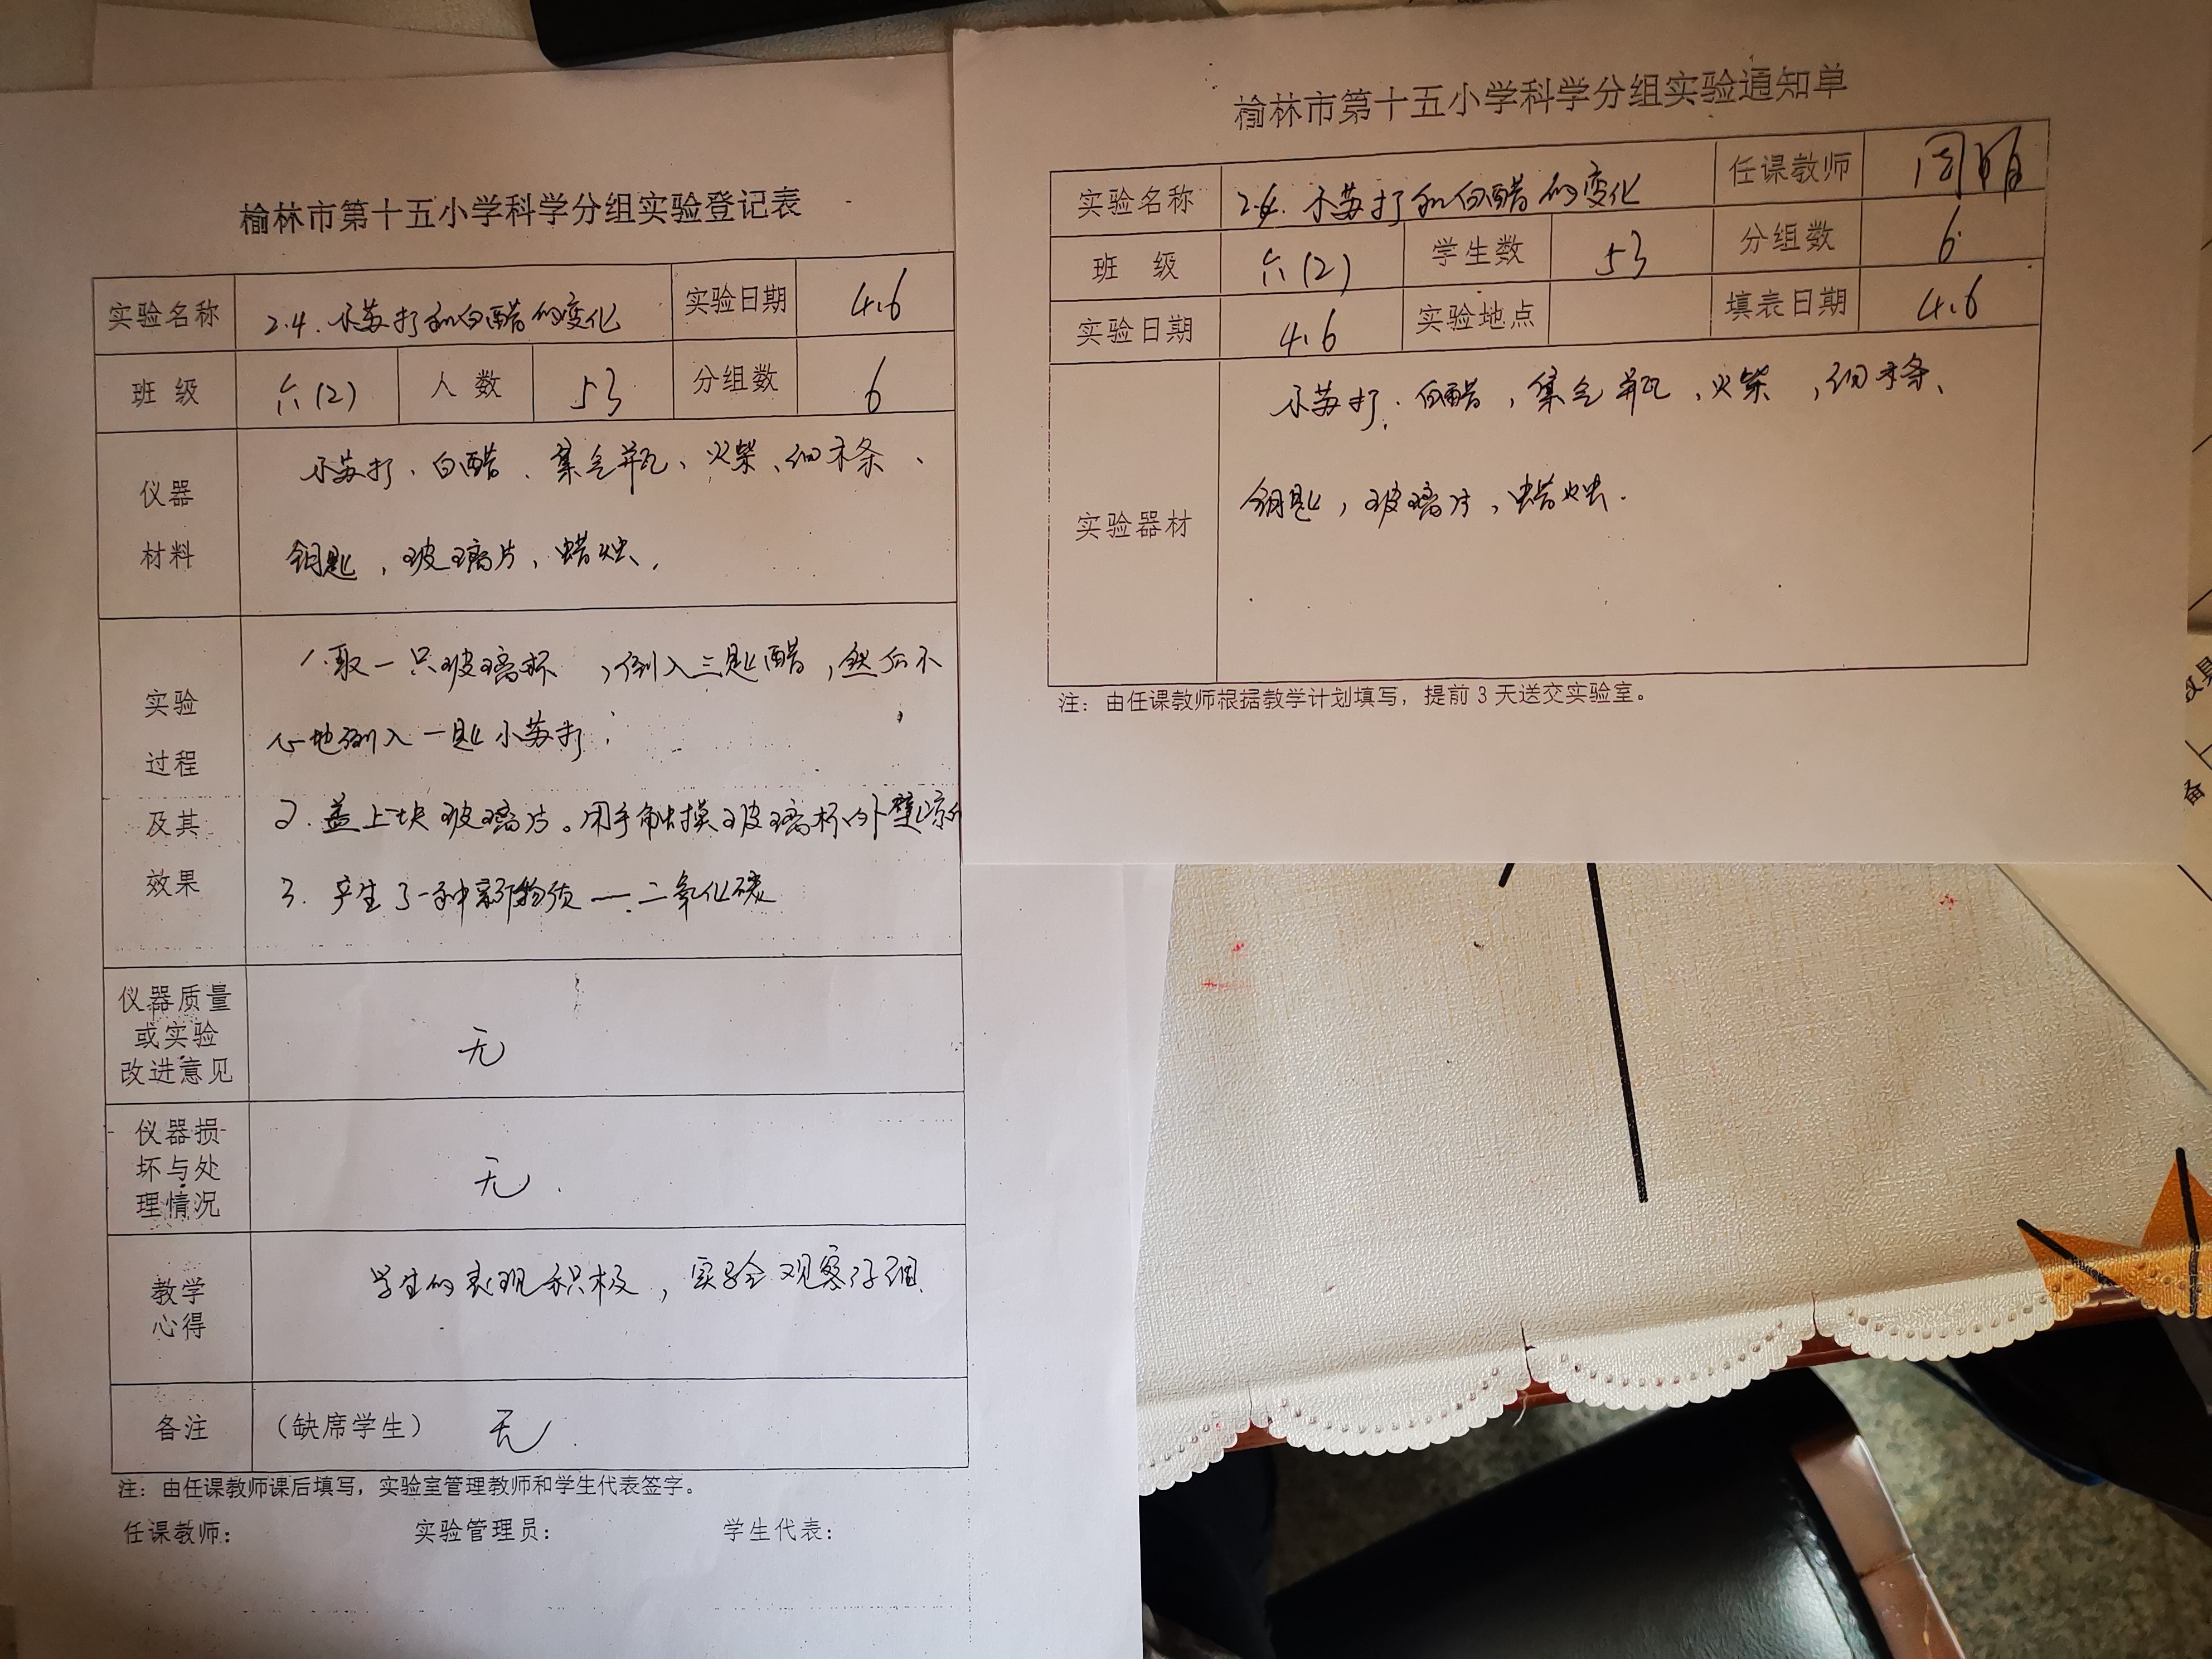 榆林市第十五小学科学分组实验登记表
实验名称 2.4.小苏打和白醋的变化 实验日期 4.6
班 级 六(2) 人 数 53 分组数 6
仪器 材料
小苏打、白醋、集气瓶、火柴、细木条、
钥匙,玻璃片,蜡烛.
实验 过程 及其 效果
1.取一只玻璃杯,倒入三匙醋,然后小
心地倒入一匙小苏打;
2.盖上块玻璃片。用手触摸玻璃杯外壁凉的
3.产生了一种新物质——二氧化碳
仪器质量
或实验
改进意见
无
仪器损
坏与处
理情况
无.
教学
心得
学生的表现积极,实验观察仔细.
各注 (缺席学生) 无.
注:由任课教师课后填写,实验室管理教师和学生代表签字。
任课教师: 实验管理员: 学生代表:
榆林市第十五小学科学分组实验通知单
实验名称 2.4.小苏打和白醋的变化 任课教师
班 级 六(2) 学生数 53 分组数 6
实验日期 4.6 实验地点 填表日期 4.6
实验器材
小苏打、白醋,集气瓶、火柴,细木条、
钥匙,玻璃片,蜡烛.
注:由任课教师根据教学计划填写,提前3天送交实验室。
备